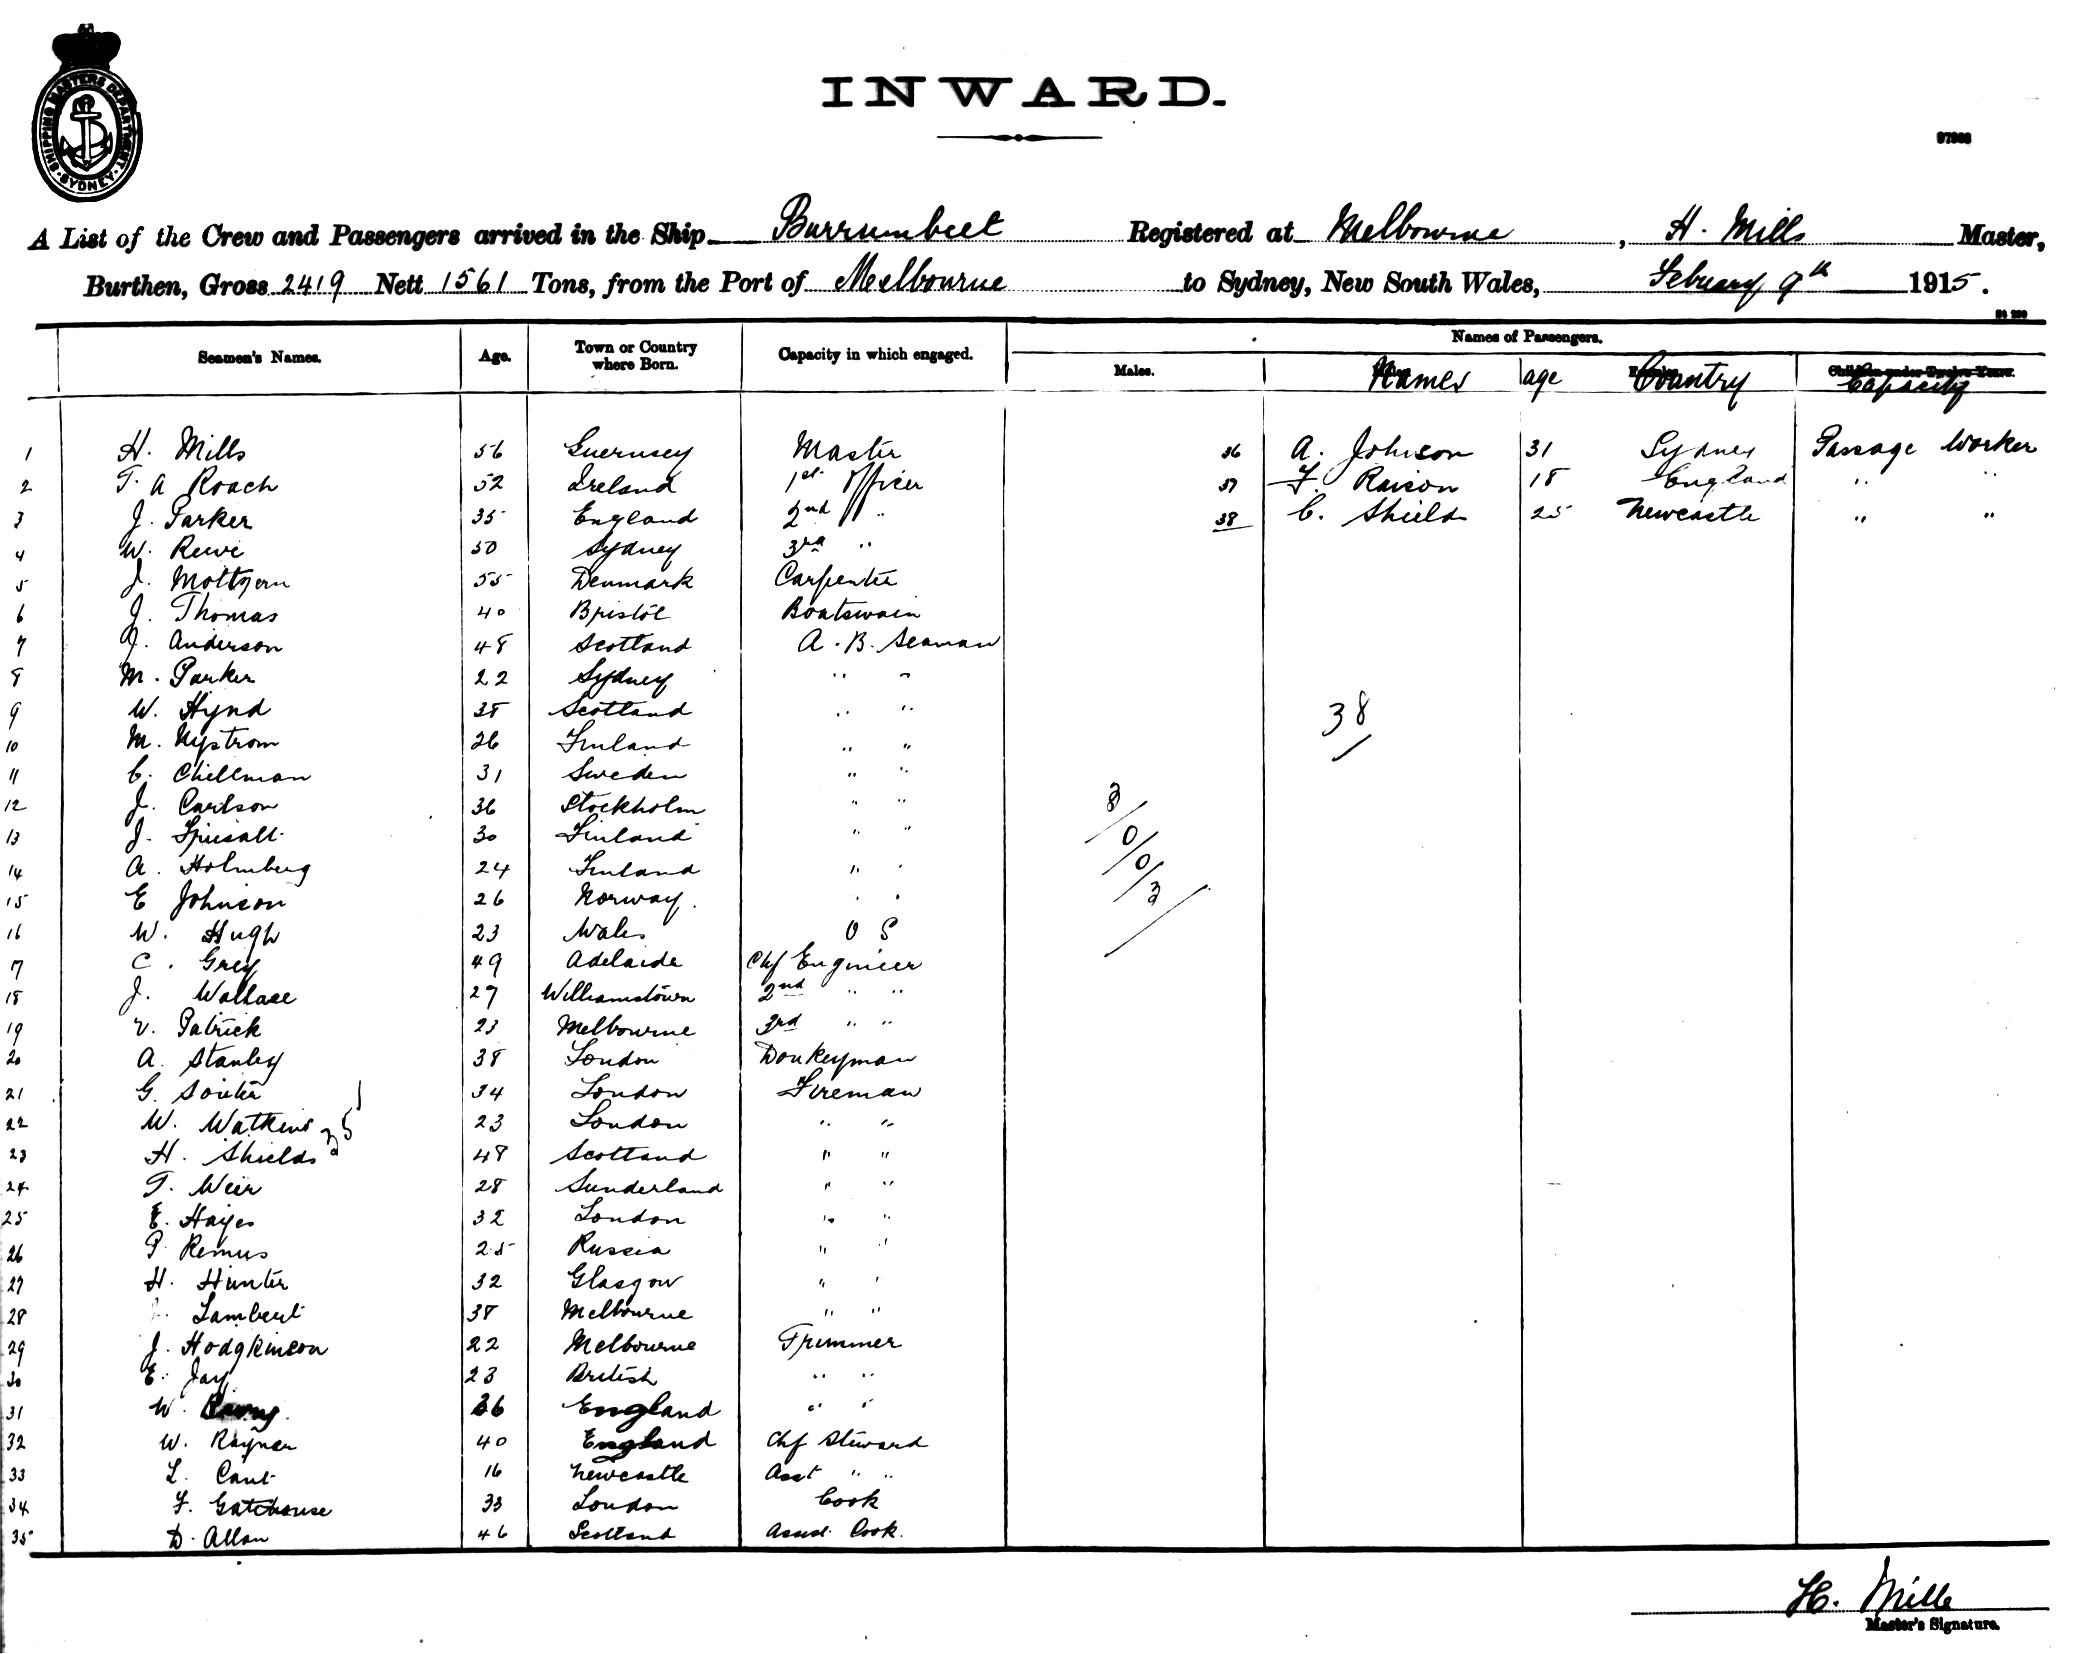 SHIPPING MASTERS DEPARTMENT · SYDNEY ·
INWARD.
A List of the Crew and Passengers arrived in the Ship Burrumbeet Registered at Melbourne, H. Mills Master,
Burthen, Gross 2419 Nett 1561 Tons, from the Port of Melbourne to Sydney, New South Wales, Febuary 9th 1915.
Seamen's Names. Age. Town or Country where Born. Capacity in which engaged. Names of Passengers.
Males. Names age Country Capacity
1 H. Mills 56 Guernsey Master 36 A. Johnson 31 Sydney Passage Worker
2 T. A Roach 52 Ireland 1st Officer 37 F. Raison 18 England " "
3 J. Parker 35 England 2nd " 38 C. Shields 25 Newcastle " "
4 W. Rewi 50 Sydney 3rd "
5 J. Moltzern 55 Denmark Carpenter
6 J. Thomas 40 Bristol Boatswain
7 J. Anderson 48 Scotland A. B. Seaman
8 M. Parker 22 Sydney " "
9 W. Hynd 38 Scotland " "
38
10 M. Nystrom 26 Finland " "
11 C. Chellman 31 Sweden " "
12 J. Carlson 36 Stockholm " "
3/0/0/3
13 J. 30 Finland " "
14 A. Holmberg 24 Finland " "
15 E Johnson 26 Norway. " "
16 W. Hugh 23 Wales O S
17 C. Grey 49 Adelaide Chf Engineer
18 J. Wallace 27 Williamstown 2nd " "
19 V. Patrick 23 Melbourne 3rd " "
20 A. Stanley 38 London Donkeyman
21 G. Souter 34 London Fireman
22 W. Watkins 23 London " "
35
23 H. Shields 48 Scotland " "
24 T. Weir 28 Sunderland " "
25 E. Hayes 32 London " "
26 P. Remus 25 Russia " "
27 H. Hunter 32 Glasgow " "
28 J. Lambert 38 Melbourne " "
29 J. Hodgkinson 22 Melbourne Trimmer
30 E. Jay 23 British " "
31 W. 36 England " "
32 W. Rayner 40 England Chf Steward
33 L. Cant 16 Newcastle Asst " "
34 F. Gatehouse 33 London Cook
35 D. Allan 46 Scotland Asst. Cook.
H. Mills
Master's Signature.